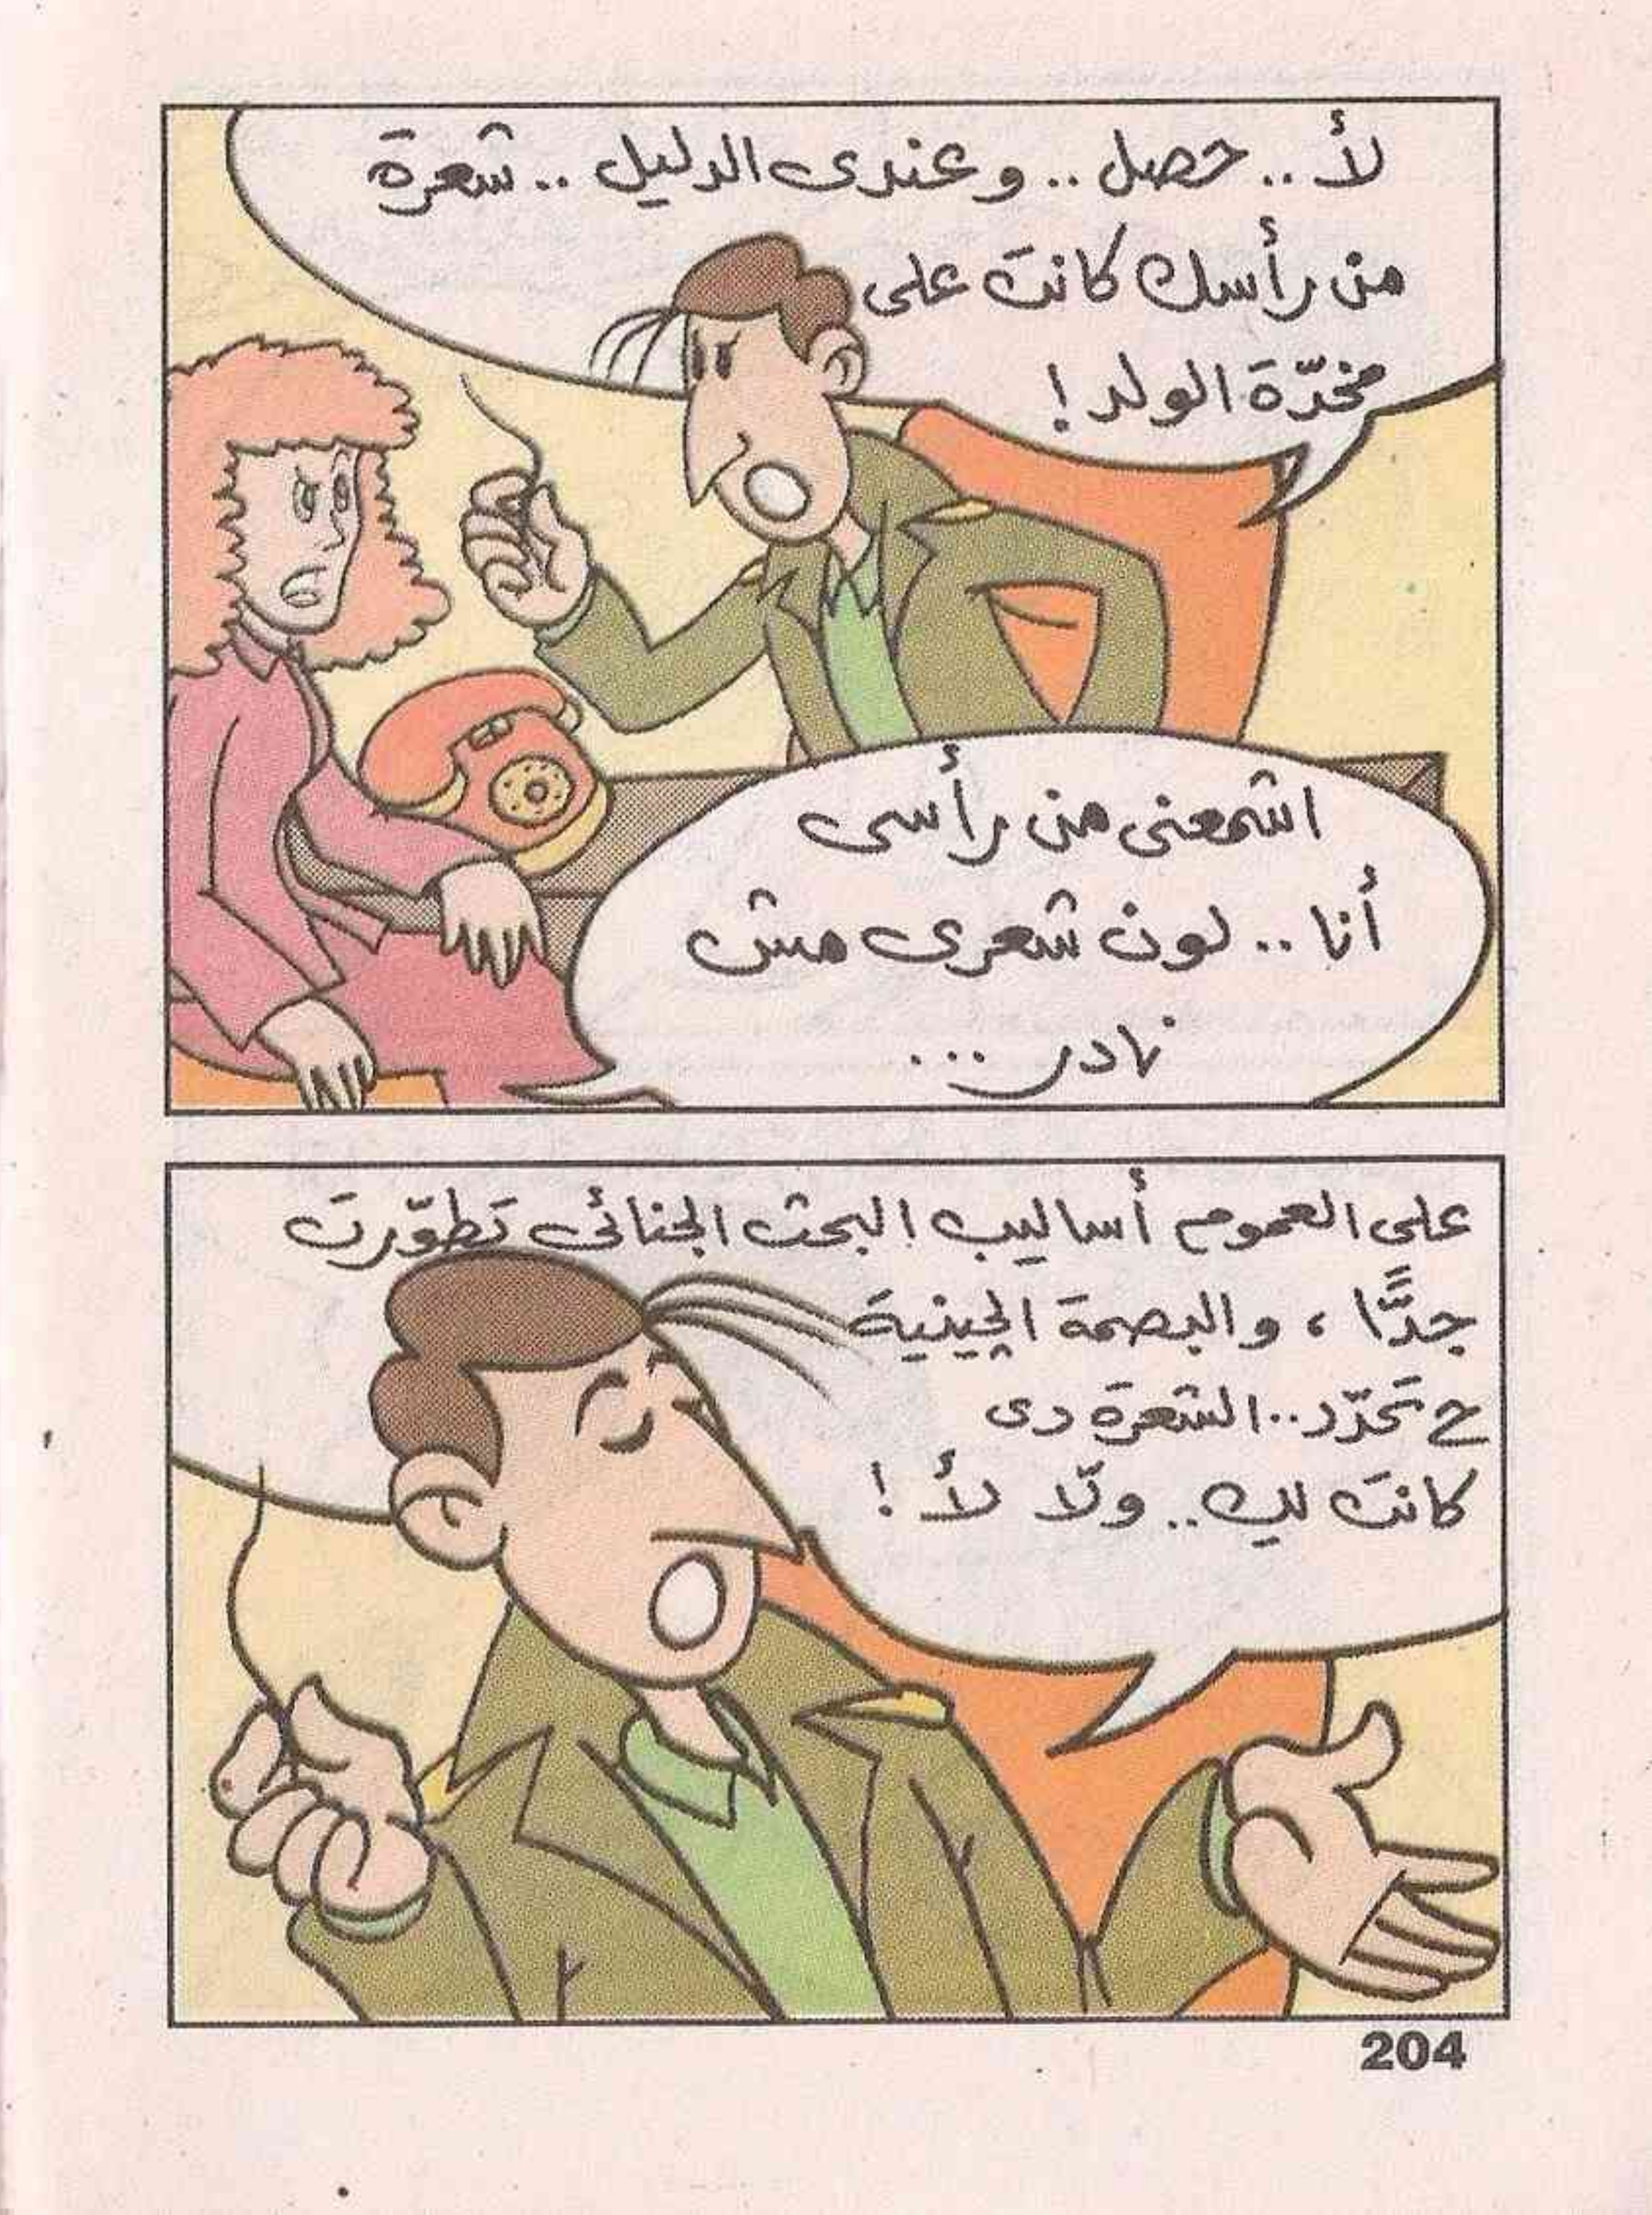 لأ.. حصل.. وعندى الدليل.. شعرة
من رأسك كانت على
مخدّة الولد!
اشمعنى من رأسى
أنا.. لون شعرى مش
نادر...
على العموم أساليب البحث الجنائى تطوّرت
جدًّا، والبصمة الچينية
ح تحدّد.. الشعرة دى
كانت ليكِ.. ولّا لأ!
204